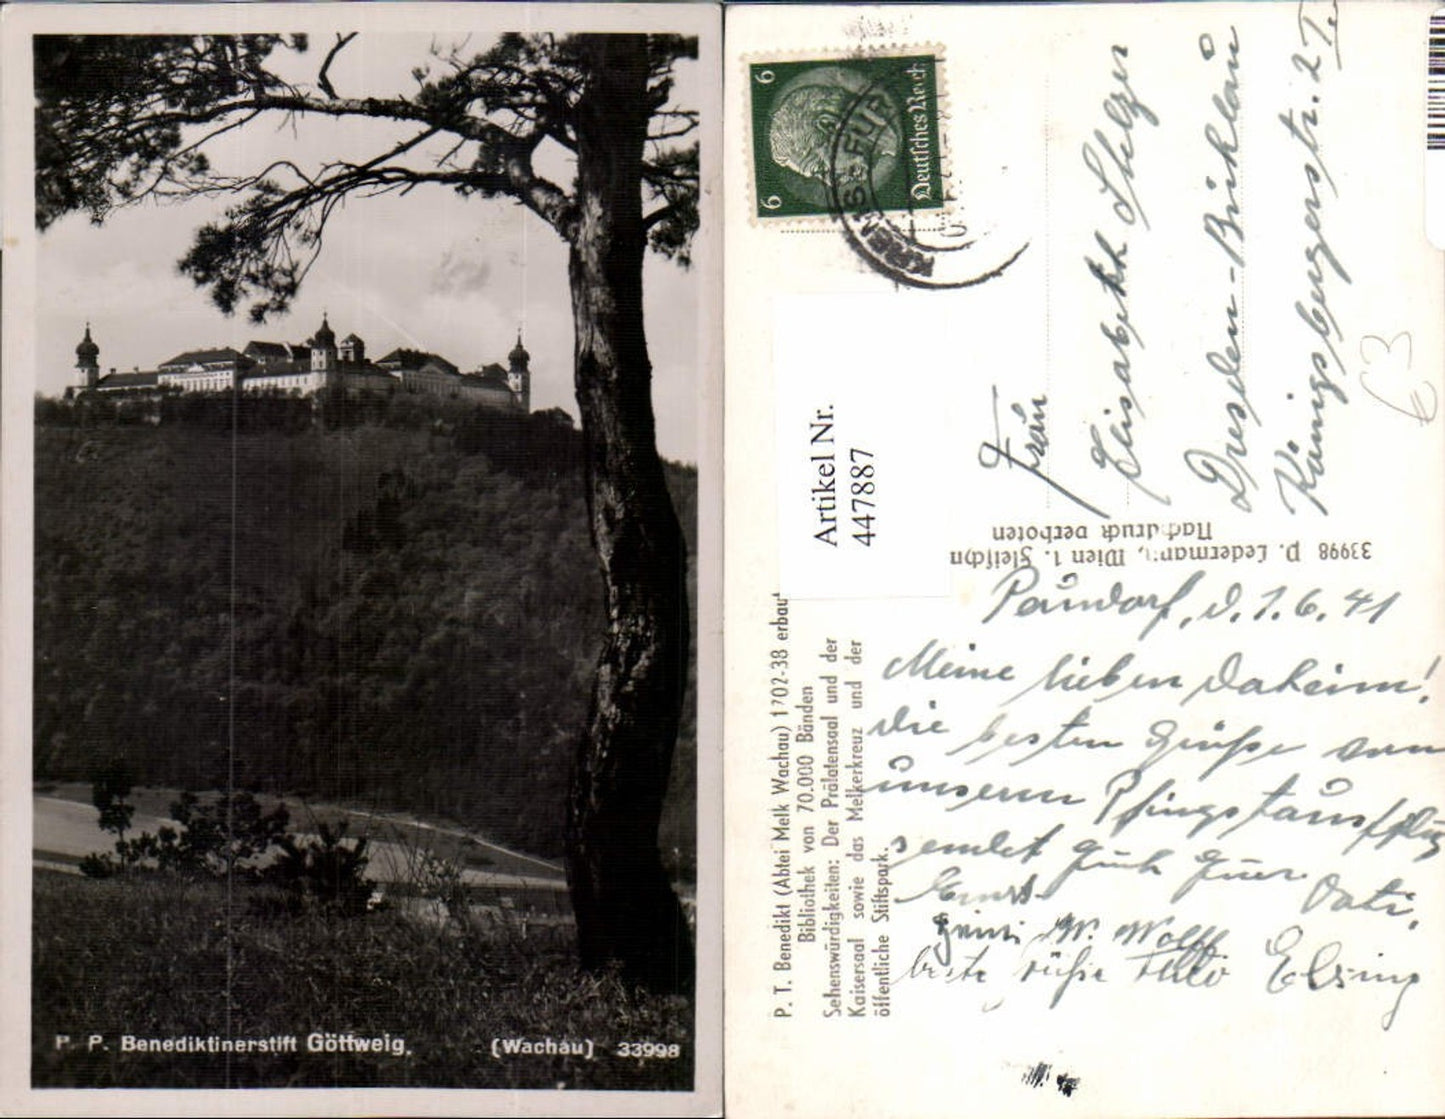 P. P. Benediktinerstift Göttweig. (Wachau) 33998
6
6
Deutsches Reich
Artikel Nr.
447887
Frau
Elisabeth Stelzer
Dresden-Bühlau
Königsbergerstr. 2
€3
33998 P. Ledermann, Wien 1. Fleischm
Nachdruck verboten
P. T. Benedikt (Abtei Melk Wachau) 1702-38 erbaut
Bibliothek von 70.000 Bänden
Sehenswürdigkeiten: Der Prälatensaal und der
Kaisersaal sowie das Melkerkreuz und der
öffentliche Stiftspark.
d. 1. 6. 41
Meine lieben Daheim!
Die besten Grüße von
unserm Pfingstausflug
sendet Euch Euer
Vati,
W. Wolff
beste Grüße Elsing